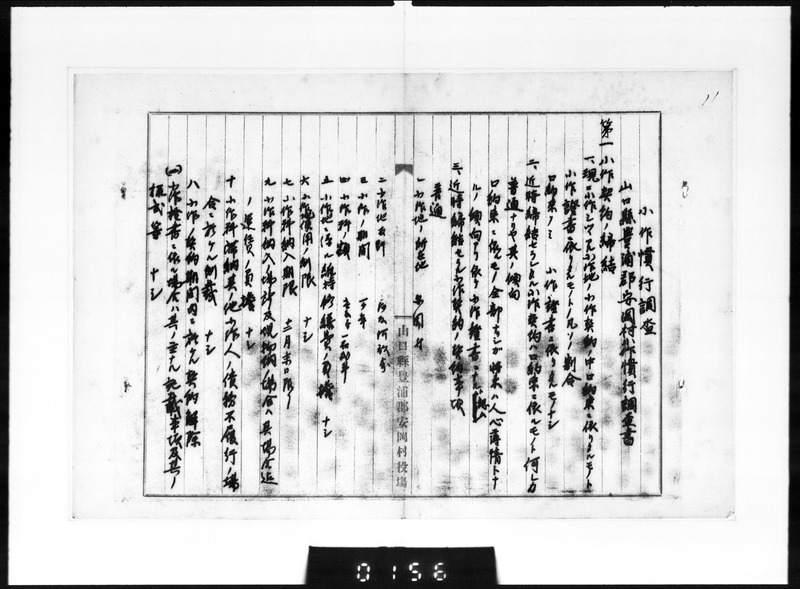 小作慣行調査
山口縣豊浦郡安岡村小作慣行調査書
第一 小作契約ノ締結
一、現ニ小作シツヽアル小作地ノ小作契約中口約束ニ依リタルモノト
小作證書ニ依リタルモノトノ凡ソノ割合
口約束ノミ 小作證書ニ依リタルモノナシ
二、近時締結セラレタル小作契約ハ口約束ニ依ルモノト何レカ
普通ナリヤ其ノ傾向
口約束ニ依ルモノ全部ナシガ将来ハ人心薄情トナ
ルノ傾向アリ依テ小作證書ニ
三、近時締結セラルヽ小作契約ノ 事項
普通
一 小作地ノ所在地
二 小作地
三 小作ノ期間
四 小作料ノ額
五 小作地ニ係ル維持修繕費ノ負擔 ナシ
六 小作地使用ノ制限 ナシ
七 小作料納入期限 十二月末日限リ
九 小作料納入ノ場所及 納ノ場合ハ其場合運
ノ運賃ノ負擔 ナシ
十 小作料滞納其ノ他小作人ノ債務不履行ノ場
合ニ於ケル制裁 ナシ
八 小作ノ契約期間内ニ於ケル契約解除
(一) 小作證書ニ依ル場合ハ其ノ主ナル記載事項及其ノ
様式等 ナシ
山口縣豊浦郡安岡村役場
11
0156